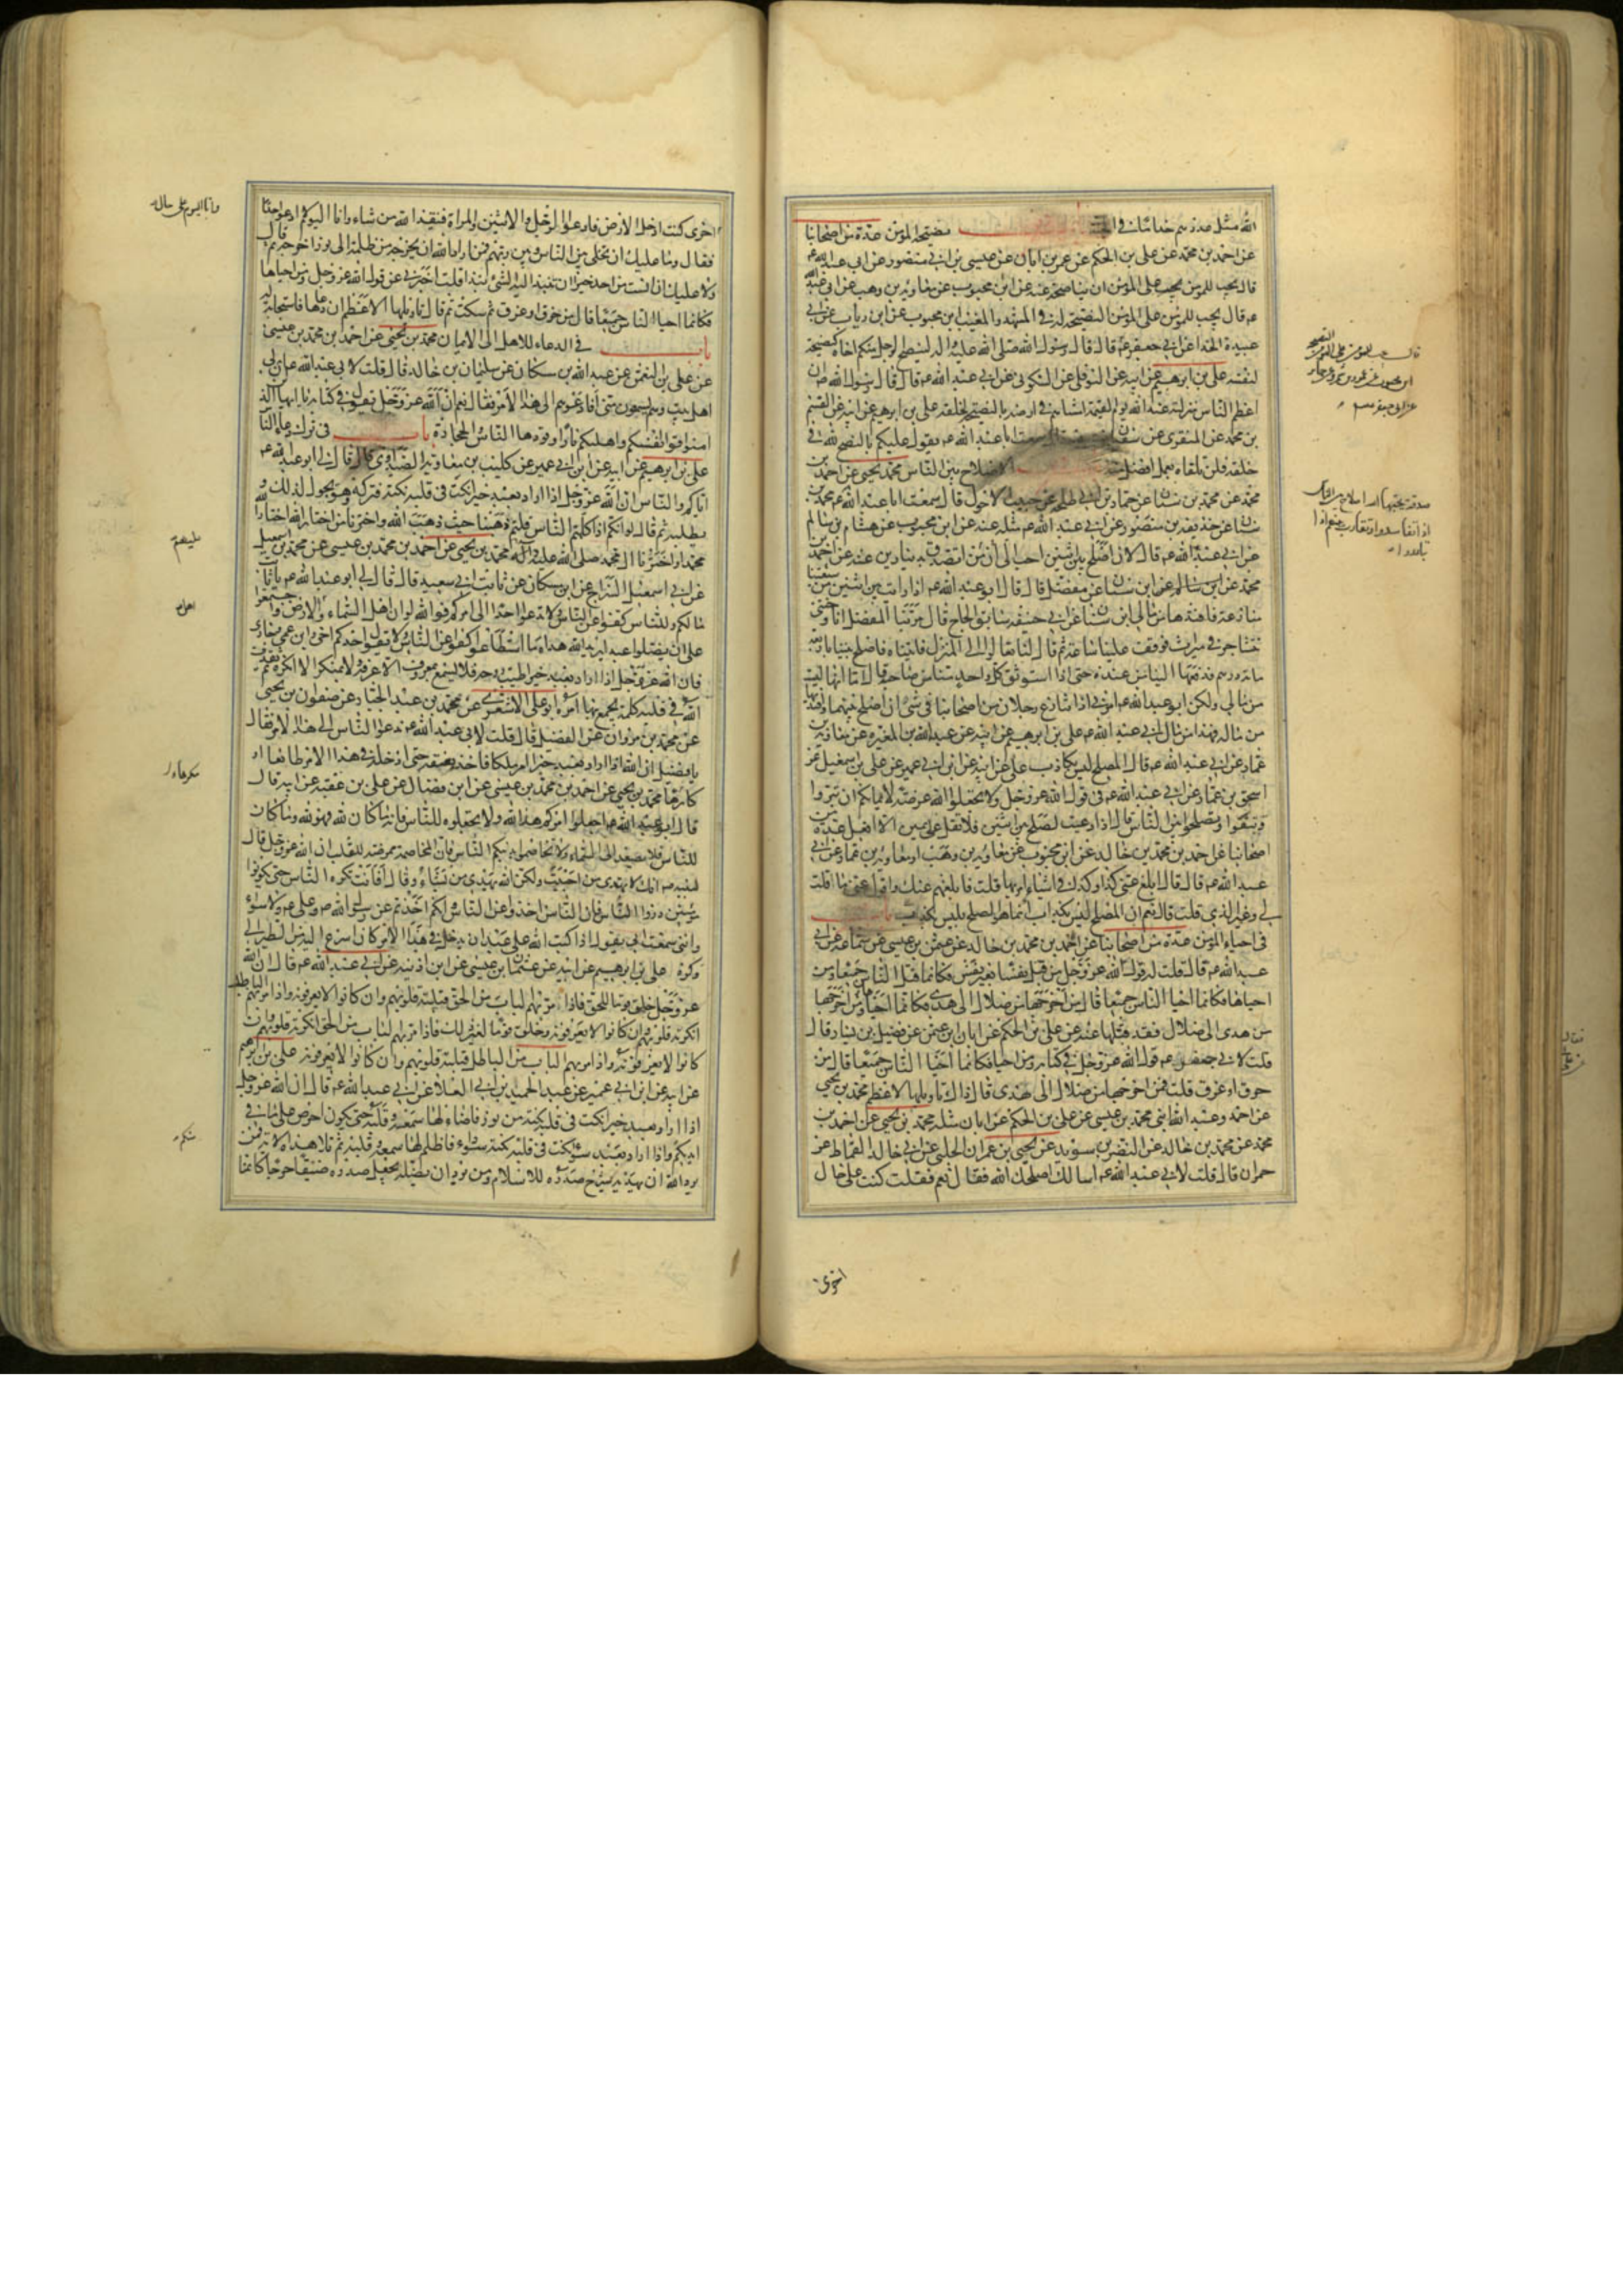 الله مثله عدة من خدامنا في الجنة باب نصيحة المؤمن عدة من اصحابنا
عن احمد بن محمد عن علي بن الحكم عن عمر بن ابان عن عيسى بن ابي منصور عن ابي عبد الله ع
قال يجب للمؤمن على المؤمن ان يناصحه عنه عن ابن محبوب عن معاوية بن وهب عن ابي عبد الله
ع قال يجب للمؤمن على المؤمن النصيحة له في المشهد والمغيب ابن محبوب عن ابن رياب عن ابي
عبيدة الحذاء عن ابي جعفر ع قال قال رسول الله صلى الله عليه واله لينصح الرجل منكم اخاه كنصيحته
لنفسه علي بن ابرهيم عن ابيه عن النوفلي عن السكوني عن ابي عبد الله ع قال قال رسول الله ص ان
اعظم الناس منزلة عند الله يوم القيمة امشاهم في ارضه بالنصيحة لخلقه علي بن ابرهيم عن ابيه عن القسم
بن محمد عن المنقري عن سفيان بن عيينة قال سمعت ابا عبد الله ع يقول عليكم بالنصح لله في
خلقه فلن تلقاه بعمل افضل منه باب الاصلاح بين الناس محمد بن يحيى عن احمد بن
محمد عن محمد بن سنان عن حماد بن ابي طلحة عن حبيب الاحول قال سمعت ابا عبد الله ع محمد بن
سنان عن حذيفة بن منصور عن ابي عبد الله ع مثله عنه عن ابن محبوب عن هشام بن سالم
عن ابي عبد الله ع قال لان اصلح بين اثنين احب الى من ان اتصدق بدينارين عنه عن احمد بن
محمد عن ابن سنان عن مفضل قال قال ابو عبد الله ع اذا رايت بين اثنين من شيعتنا
منازعة فافتدها من مالي ابن سنان عن ابي حنيفة سابق الحاج قال مر بنا المفضل وانا وختني
نتشاجر في ميراث فوقف علينا ساعة ثم قال لنا تعالوا الى المنزل فاتيناه فاصلح بيننا باربع
مائة درهم فدفعها الينا من عنده حتى اذا استوثق كل واحد منا من صاحبه قال اما انها ليست
من مالي ولكن ابو عبد الله ع امرني اذا تنازع رجلان من اصحابنا في شئ ان اصلح بينهما وافتديها
من ماله فهذا من مال ابي عبد الله ع علي بن ابرهيم عن ابيه عن عبد الله بن المغيرة عن معاوية بن
عمار عن ابي عبد الله ع قال المصلح ليس بكاذب علي عن ابيه عن ابن ابي عمير عن علي بن اسمعيل عن
اسحق بن عمار عن ابي عبد الله ع في قول الله عز وجل ولا تجعلوا الله عرضة لايمانكم ان تبروا
وتتقوا وتصلحوا بين الناس قال اذا دعيت لصلح بين اثنين فلا تقل علي يمين الا افعل عدة من
اصحابنا عن احمد بن محمد بن خالد عن ابن محبوب عن معاوية بن وهب او معاوية بن عمار عن ابي
عبد الله ع قال قال ابلغ عني كذا وكذا في اشياء امر بها قلت فابلغهم عنك واقول عني ما قلت
لي وغير الذي قلت قال نعم ان المصلح ليس بكذاب انما هو الصلح ليس بكذب باب
في احياء المؤمن عدة من اصحابنا عن احمد بن محمد بن خالد عن عثمن بن عيسى عن سماعة عن ابي
عبد الله ع قال قلت له قول الله عز وجل من قتل نفسا بغير نفس فكانما قتل الناس جميعا ومن
احياها فكانما احيا الناس جميعا قال من اخرجها من ضلال الى هدى فكانما احياها ومن اخرجها
من هدى الى ضلال فقد قتلها عنه عن علي بن الحكم عن ابان بن عثمن عن فضيل بن يسار قال
قلت لابي جعفر ع قول الله عز وجل في كتابه ومن احياها فكانما احيا الناس جميعا قال من
حرق او غرق قلت فمن اخرجها من ضلال الى هدى قال ذاك تاويلها الاعظم محمد بن يحيى
عن احمد وعبد الله ابني محمد بن عيسى عن علي بن الحكم عن ابان مثله محمد بن يحيى عن احمد بن
محمد عن محمد بن خالد عن النضر بن سويد عن يحيى بن عمران الحلبي عن ابي خالد القماط عن
حمران قال قلت لابي عبد الله ع اسالك اصلحك الله فقال نعم فقلت كنت على حال
اخرى
صدقة يحبها الله اصلاح بين الناس
اذا تفاسدوا وتقارب بينهم اذا
تباعدوا
اخرى كنت ادخل الارض فادعو الرجل والاثنين والمراة فينقذ الله من شاء وانا اليوم لا ادعو احدا
فقال وما عليك ان تخلي بين الناس وبين ربهم فمن اراد الله ان يخرجه من ظلمة الى نور اخرجه ثم قال
ولا عليك ان انست من احد خيرا ان تنبذ اليه الشئ نبذا قلت اخبرني عن قول الله عز وجل ومن احياها
فكانما احيا الناس جميعا قال من حرق او غرق ثم سكت ثم قال تاويلها الاعظم ان دعاها فاستجابت له
باب في الدعاء للاهل الى الايمان محمد بن يحيى عن احمد بن محمد بن عيسى
عن علي بن النعمن عن عبد الله بن مسكان عن سليمان بن خالد قال قلت لابي عبد الله ع ان لي
اهل بيت وهم يسمعون مني افادعوهم الى هذا الامر فقال نعم ان الله عز وجل يقول في كتابه يا ايها الذين
امنوا قوا انفسكم واهليكم نارا وقودها الناس والحجارة باب في ترك دعاء الناس
علي بن ابرهيم عن ابيه عن ابن ابي عمير عن كليب بن معاوية الصيداوي قال قال لي ابو عبد الله ع
اياكم والناس ان الله عز وجل اذا اراد بعبد خيرا نكت في قلبه نكتة فتركه وهو يجول لذلك و
يطلبه ثم قال لو انكم اذا كلمتم الناس قلتم ذهبنا حيث ذهب الله واخترنا من اختار الله اختار الله
محمدا واخترنا ال محمد صلى الله عليه واله محمد بن يحيى عن احمد بن محمد بن عيسى عن محمد بن اسمعيل
عن ابي اسمعيل السراج عن ابن مسكان عن ثابت ابي سعيد قال قال لي ابو عبد الله ع يا ثابت
ما لكم وللناس كفوا عن الناس ولا تدعوا احدا الى امركم فوالله لو ان اهل السماء والارض اجتمعوا
على ان يضلوا عبدا يريد الله هداه ما استطاعوا كفوا عن الناس ولا يقول احدكم اخي وابن عمي وجاري
فان الله عز وجل اذا اراد بعبد خيرا طيب روحه فلا يسمع بمعروف الا عرفه ولا بمنكر الا انكره ثم يقذف
الله في قلبه كلمة يجمع بها امره ابو علي الاشعري عن محمد بن عبد الجبار عن صفوان بن يحيى
عن محمد بن مروان عن الفضيل قال قلت لابي عبد الله ع ندعوا الناس الى هذا الامر فقال
يا فضيل ان الله اذا اراد بعبد خيرا امر ملكا فاخذ بعنقه حتى ادخله في هذا الامر طائعا او
كارها محمد بن يحيى عن احمد بن محمد بن عيسى عن ابن فضال عن علي بن عقبة عن ابيه قال
قال ابو عبد الله ع اجعلوا امركم هذا لله ولا تجعلوه للناس فانه ما كان لله فهو لله وما كان
للناس فلا يصعد الى السماء ولا تخاصموا بدينكم الناس فان المخاصمة ممرضة للقلب ان الله عز وجل قال
لنبيه ص انك لا تهدي من احببت ولكن الله يهدي من يشاء وقال افانت تكره الناس حتى يكونوا
مؤمنين ذروا الناس فان الناس اخذوا عن الناس وانكم اخذتم عن رسول الله ص وعلي ع ولا سواء
وانني سمعت ابي يقول اذا كتب الله على عبد ان يدخله في هذا الامر كان اسرع اليه من الطير الى
وكره علي بن ابرهيم عن ابيه عن عثمان بن عيسى عن ابن اذينة عن ابي عبد الله ع قال ان الله
عز وجل خلق قوما للحق فاذا مر بهم الباب من الحق قبلته قلوبهم وان كانوا لا يعرفونه واذا مر بهم الباطل
انكرته قلوبهم وان كانوا لا يعرفونه وخلق قوما لغير ذلك فاذا مر بهم الباب من الحق انكرته قلوبهم وان
كانوا لا يعرفونه واذا مر بهم الباب من الباطل قبلته قلوبهم وان كانوا لا يعرفونه علي بن ابرهيم
عن ابيه عن ابن ابي عمير عن عبد الحميد بن ابي العلاء عن ابي عبد الله ع قال ان الله عز وجل
اذا اراد بعبد خيرا نكت في قلبه نكتة من نور فاضاء لها سمعه وقلبه حتى يكون احرص على ما في
ايديكم واذا اراد بعبد سوءا نكت في قلبه نكتة سوداء فاظلم لها سمعه وقلبه ثم تلا هذه الاية فمن
يرد الله ان يهديه يشرح صدره للاسلام ومن يرد ان يضله يجعل صدره ضيقا حرجا كانما
وانا اليوم على حال